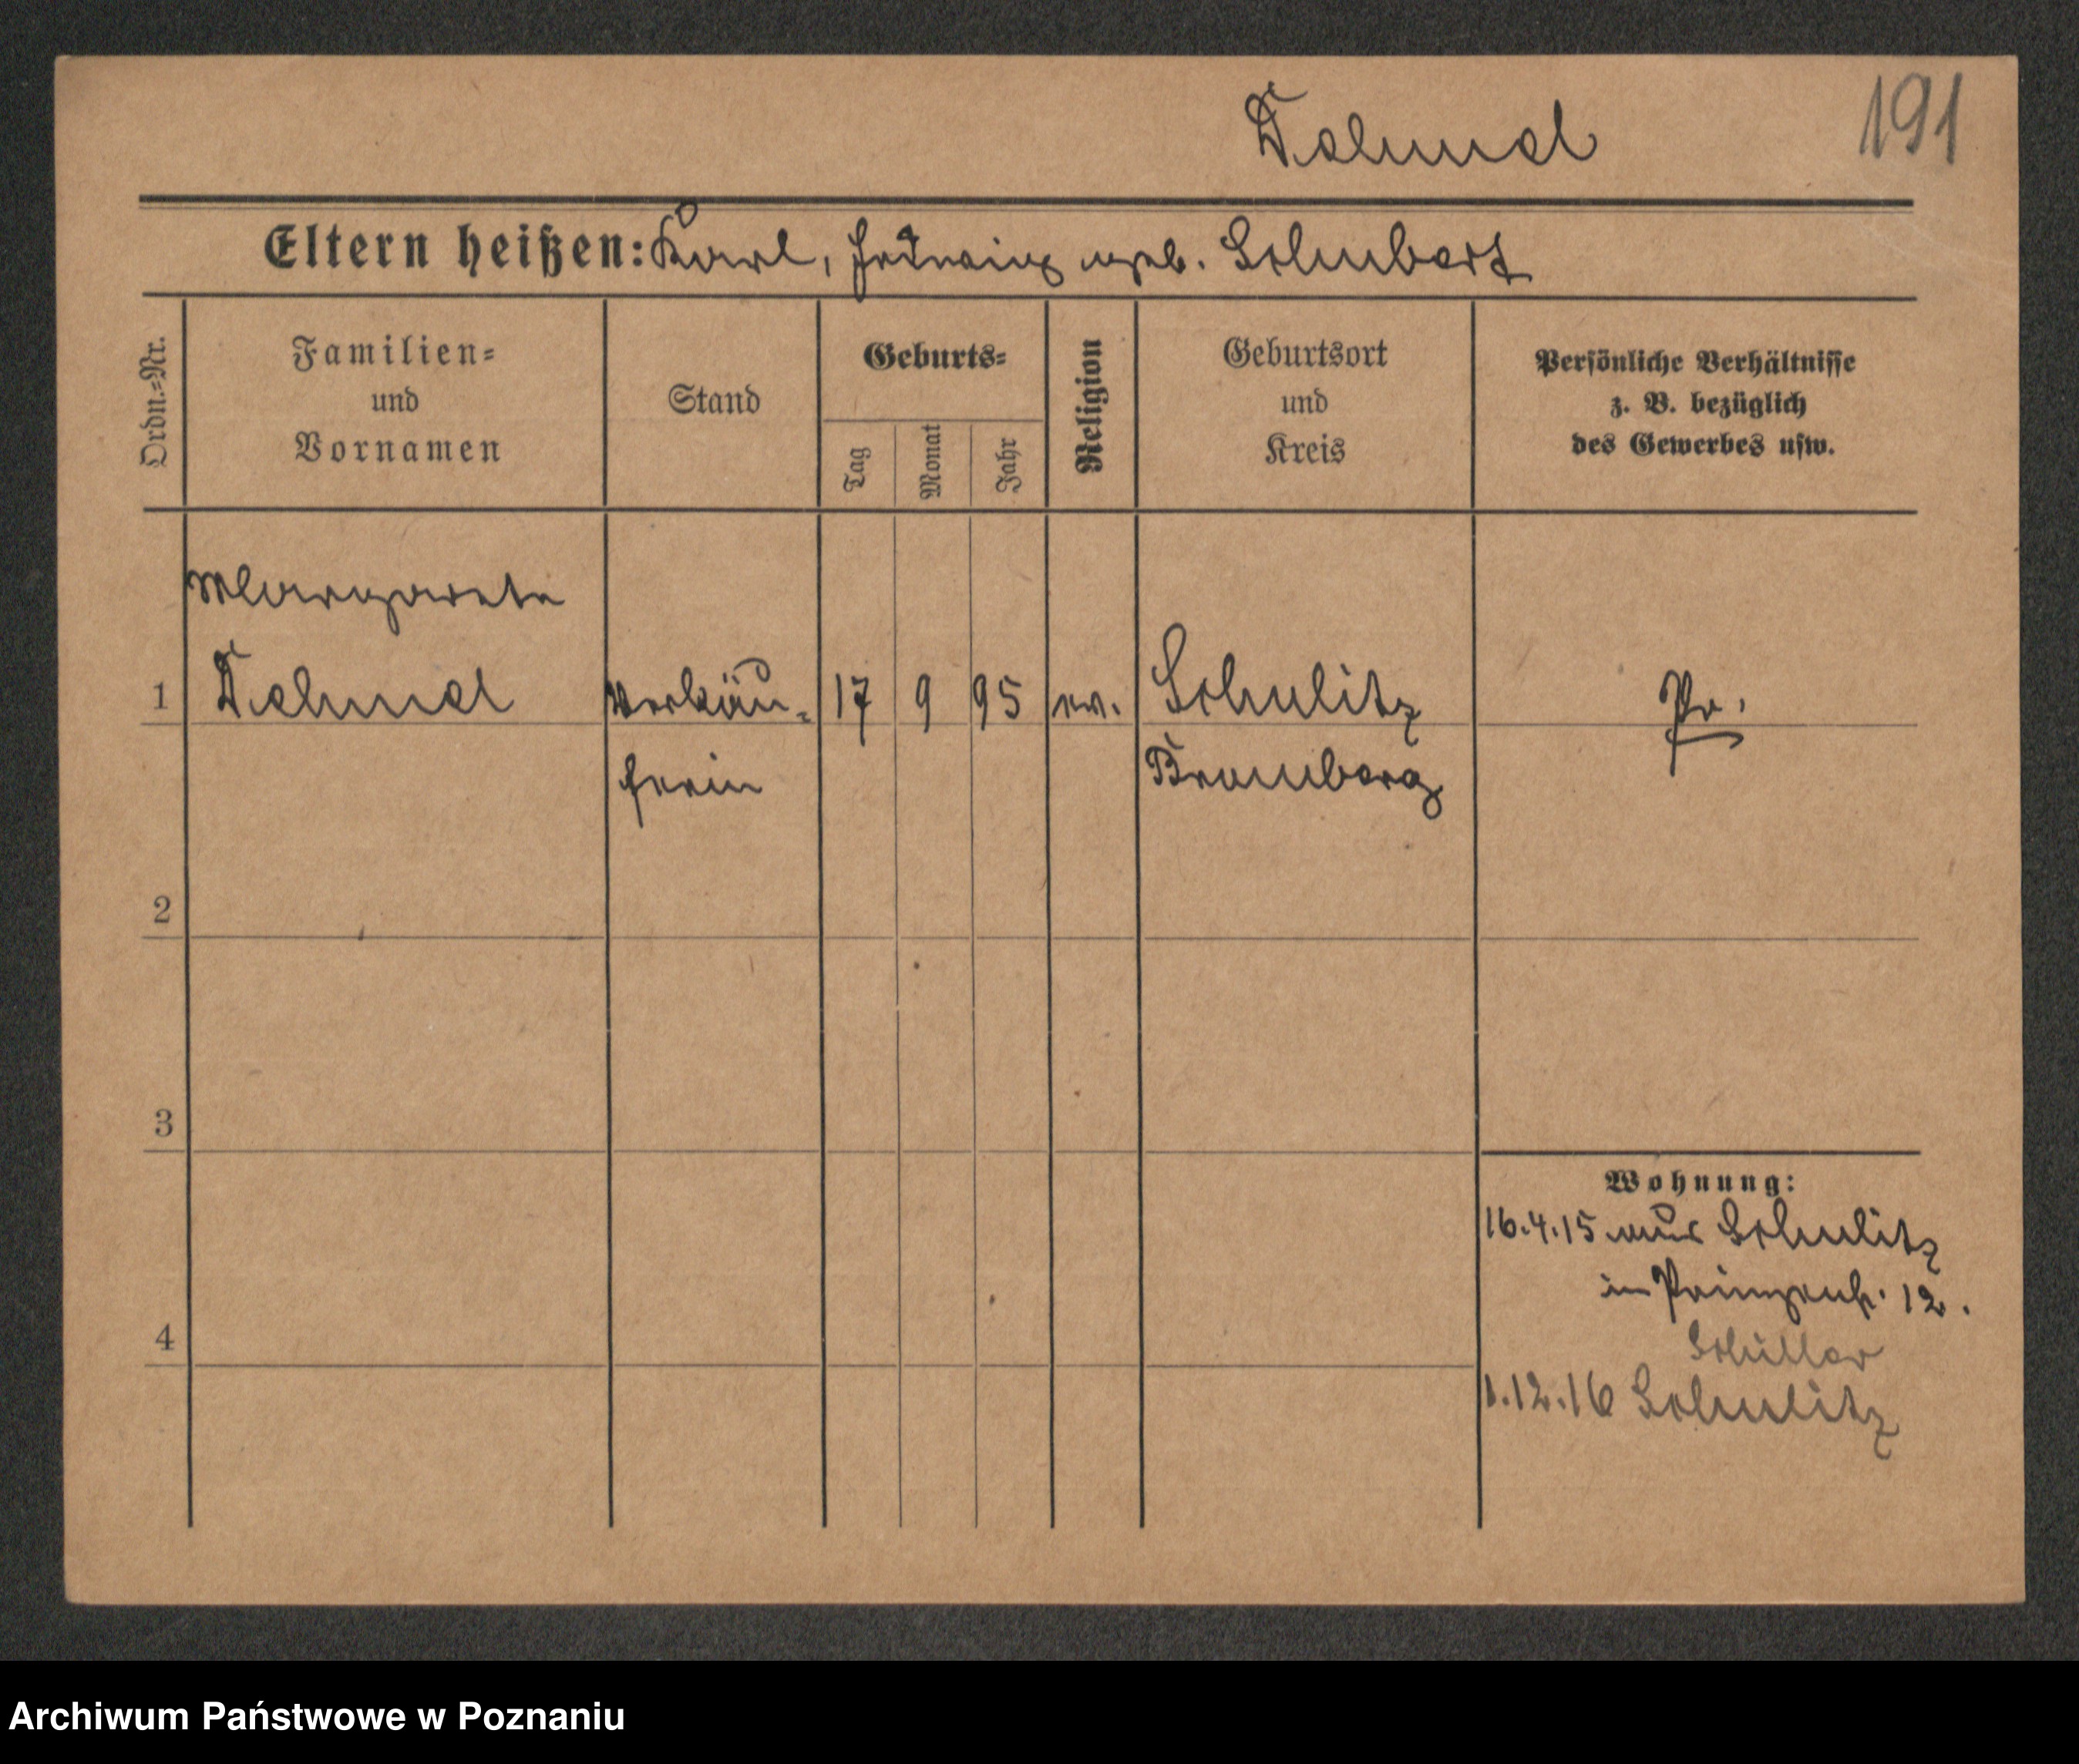 Dehmel
191
Eltern heißen: Karl, Hedwig geb. Schubert
Ordn.=Nr.
Familien=
und
Vornamen
Stand
Geburts=
Tag
Monat
Jahr
Religion
Geburtsort
und
Kreis
Persönliche Verhältnisse
z. B. bezüglich
des Gewerbes usw.
Margarete
1 Dehmel Verkäu= 17 9 95 ev. Schulitz Pr.
ferin Bromberg
2
3
Wohnung:
16.4.15 aus Schulitz
in Prinzenstr. 12.
4
Schiller
1.12.16 Schulitz
Archiwum Państwowe w Poznaniu